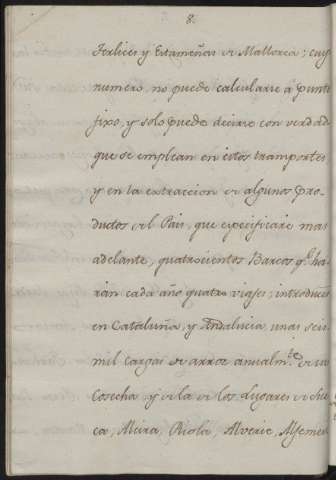 8.
Terlices y Estameñas de Mallorca; cuyo
numero, no puede calcularse á punto
fixo, y solo puede decirse con verdad
que se emplean en estos transportes
y en la extraccion de algunos pro-
ductos del Pais, que especificaré mas
adelante, quatrocientos Barcos q.e ha-
rán cada año quatro viajes; introducen
en Cataluña, y Andalucia, unas seis
mil cargas de arroz anualm.te de su
Cosecha, y de la de los Lugares de
ca, Alcira, Riola, Alveric,